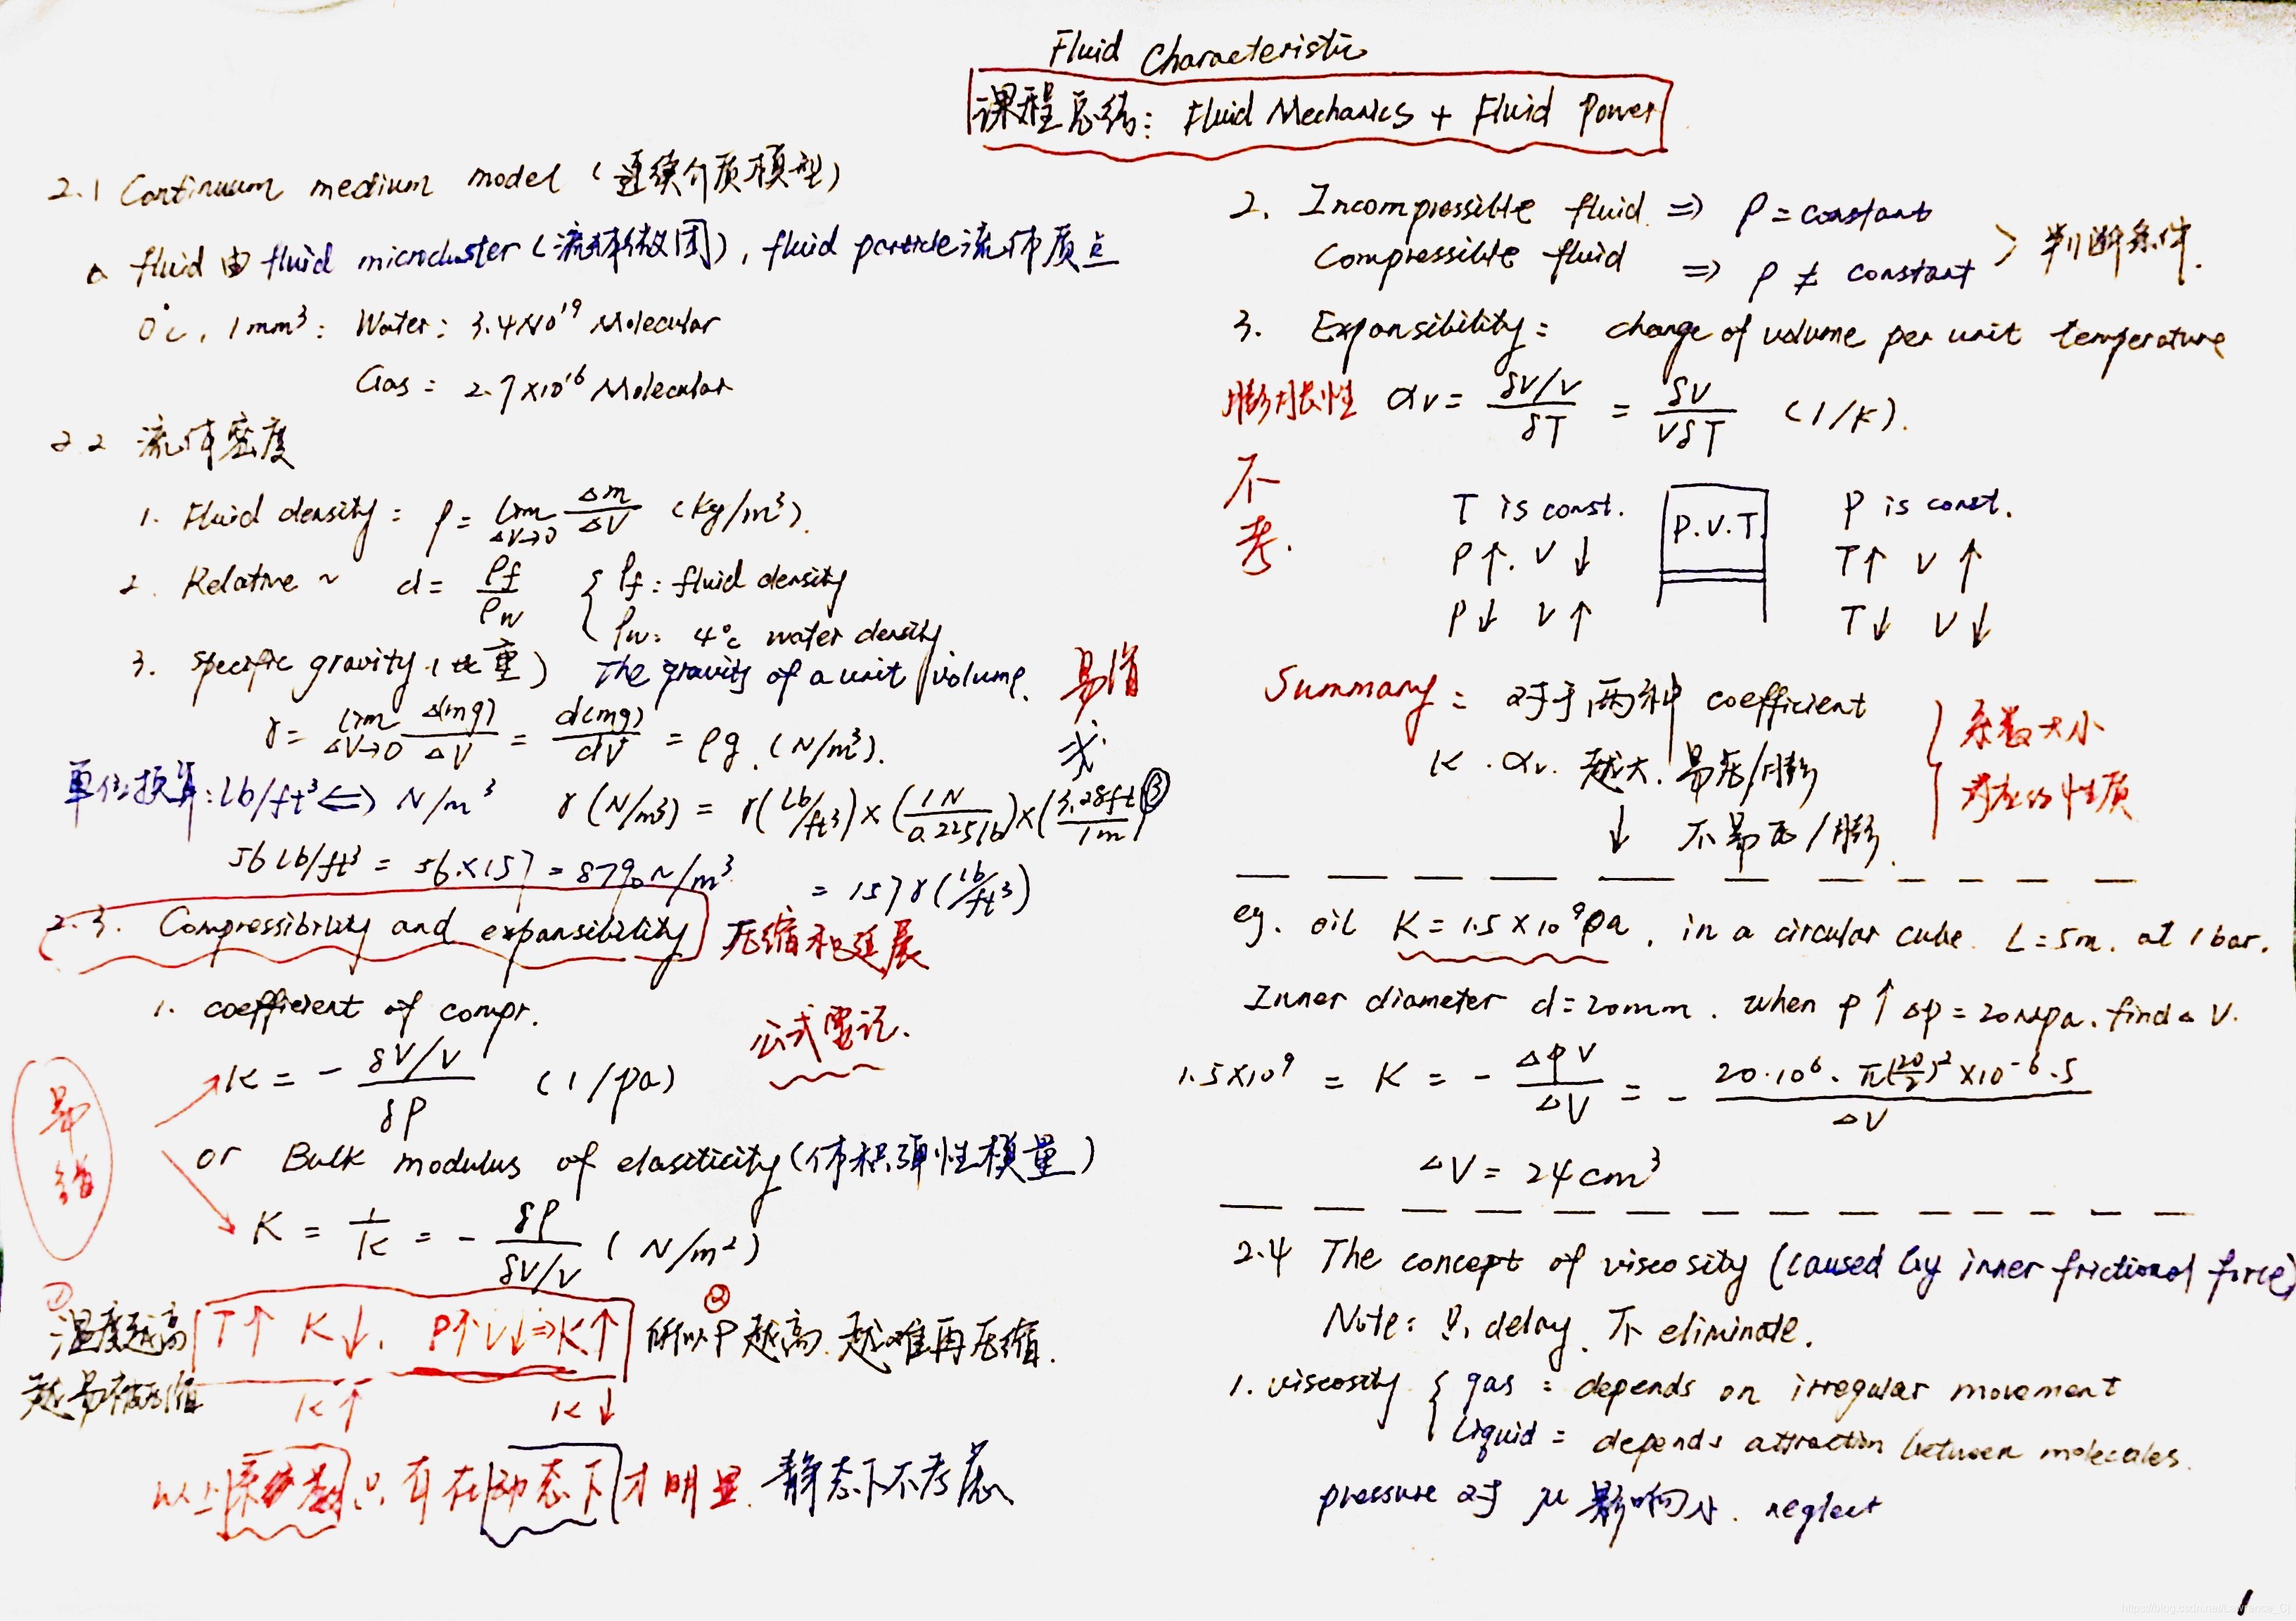 Fluid Characteristic
课程总结: Fluid Mechanics + Fluid Power
2.1 Continuum medium model (连续介质模型)
a fluid 由 fluid microcluster (流体微团), fluid particle 流体质点
0°c, 1mm³: Water: 3.4×10¹⁹ Molecular
Gas: 2.7×10¹⁶ Molecular
2.2 流体密度
1. Fluid density: ρ = lim ΔV→0 Δm/ΔV (kg/m³).
2. Relative ~ d = ρf/ρw { ρf: fluid density
ρw: 4°c water density
3. specific gravity (比重) The gravity of a unit volume. 易错
γ = lim ΔV→0 Δ(mg)/ΔV = d(mg)/dV = ρg. (N/m³).
单位换算: lb/ft³ ⟺ N/m³ γ(N/m³) = γ(lb/ft³)×(1N/0.225lb)×(3.28ft/1m)³
56 lb/ft³ = 56×157 = 8790 N/m³ = 157γ(lb/ft³)
2.3. Compressibility and expansibility 压缩和延展
1. coefficient of compr. 公式要记.
易错
k = - δV/V / δP (1/pa)
or Bulk modulus of elasiticity (体积弹性模量)
K = 1/k = - δP / δV/V (N/m²)
① 温度越高 T↑ K↓. P↑V↓⇒K↑ ② 所以P越高. 越难再压缩.
越易被压缩 k↑ k↓
以上系数只有在动态下才明显. 静态下不考虑
2. Incompressible fluid. ⇒ ρ = constant
Compressible fluid ⇒ ρ ≠ constant > 判断条件.
3. Expansibility: change of volume per unit temperature
膨胀性 αv = δV/V / δT = δV / VδT (1/K).
不考.
T is const. P.V.T P is const.
P↑. V↓ T↑ V↑
P↓ V↑ T↓ V↓
Summary: 对于两种 coefficient
k . αv. 越大. 易压/膨
↓ 不易压/膨.
} 系数大小
对应的性质
eg. oil K = 1.5×10⁹pa, in a circular cube. L=5m. at 1bar.
Inner diameter d=20mm. when P↑ Δp=20Mpa. find ΔV.
1.5×10⁹ = K = - ΔP V / ΔV = - 20·10⁶·π(20/2)²×10⁻⁶·5 / ΔV
ΔV = 24cm³
2.4 The concept of viscosity (caused by inner frictional force)
Note: 只 delay. 不 eliminate.
1. viscosity { gas: depends on irregular movement
Liquid: depends attraction between molecules.
pressure 对 μ 影响小. neglect
1